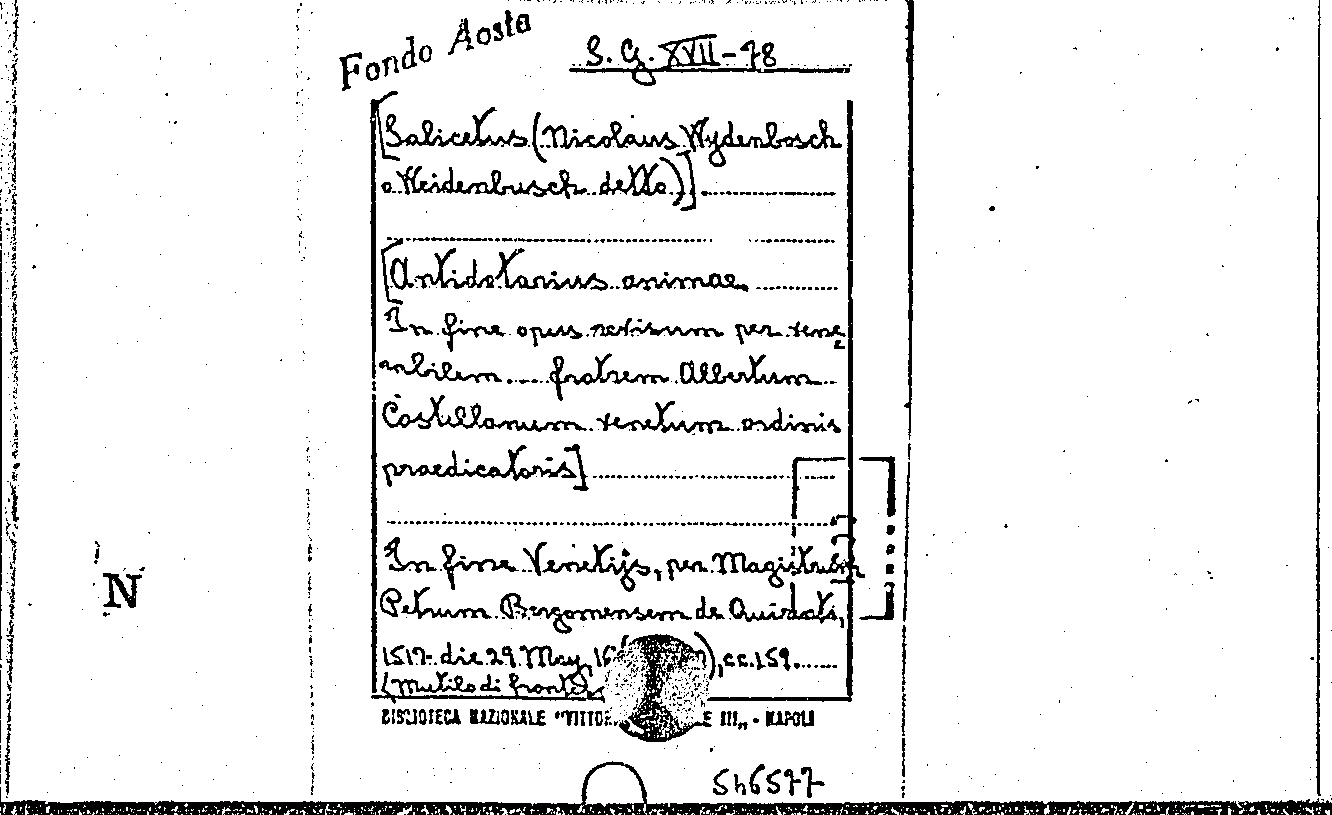 Fondo Aosta
S. G. XVII-78
[Salicetus (Nicolaus Wydenbosch
o Weidenbusch detto)]
[Antidotarius animae.
In fine opus revisum per vene=
rabilem.... fratrem Albertum
Castellanum venetum ordinis
praedicatoris]
In fine Venetijs, per Magistrum
Petrum Bergomensem de Quirdati,
1517. die 29. May, 16 ), cc. 159.
(Mutilo di fronte).
BIBLIOTECA NAZIONALE "VITTOR E III„ - NAPOLI
N
546577